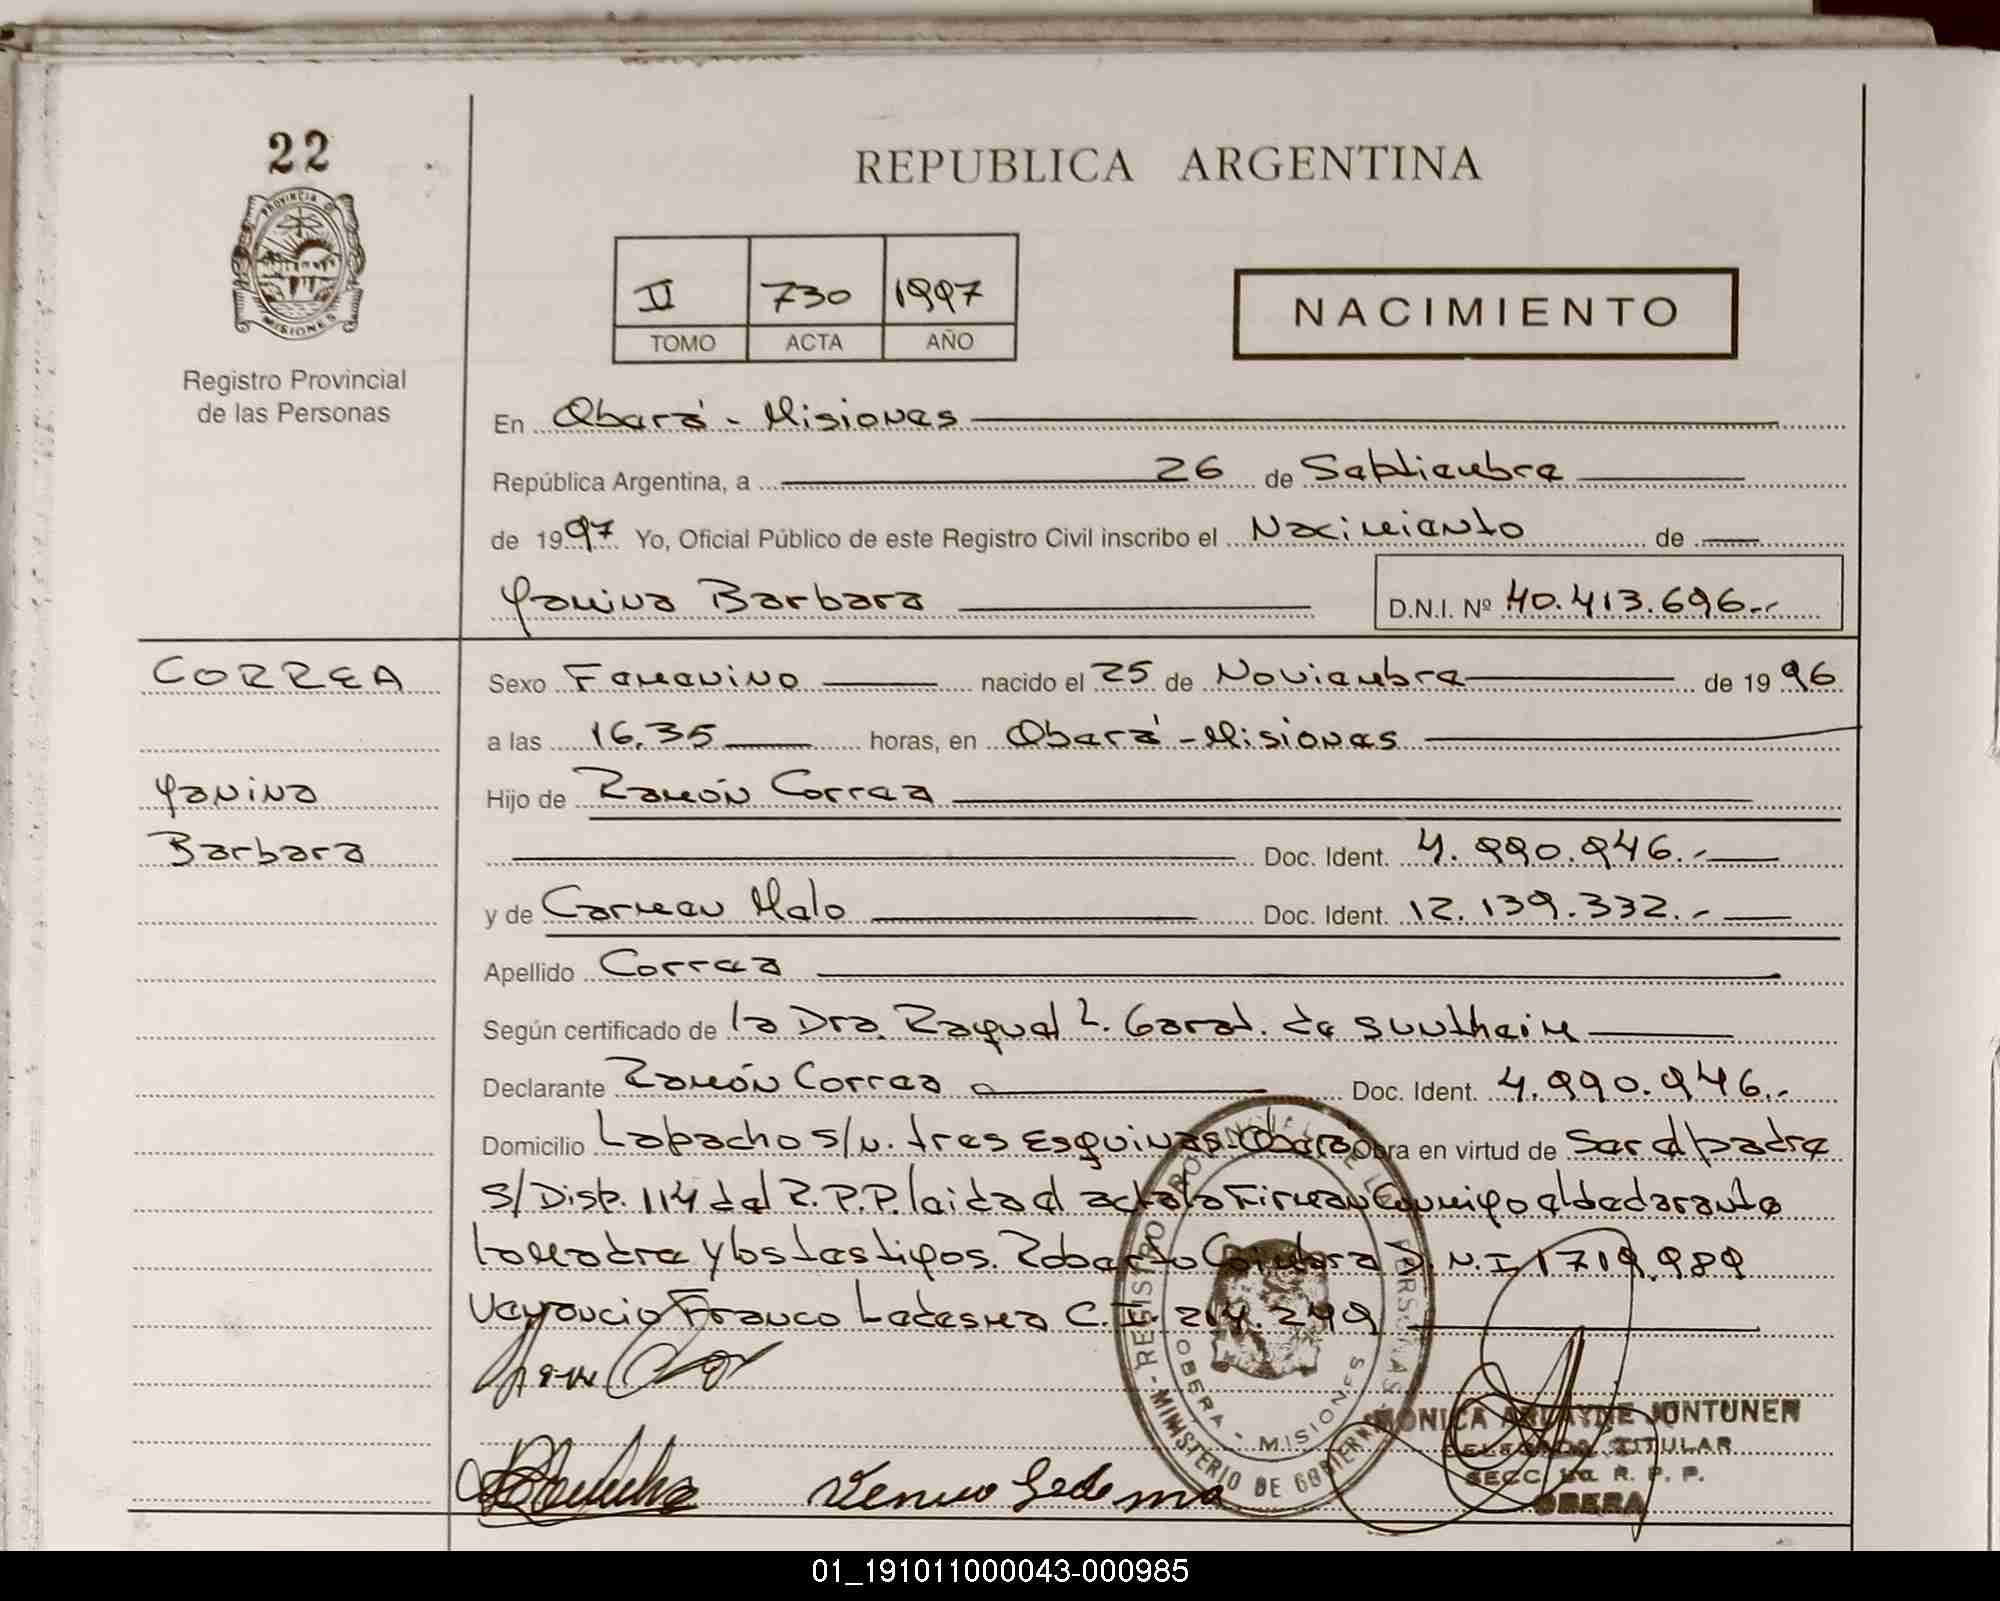 22
REPUBLICA ARGENTINA
PROVINCIA D
MISIONES
II 730 1997
TOMO ACTA AÑO
NACIMIENTO
Registro Provincial
de las Personas
En Oberá - Misiones
República Argentina, a 26 de Septiembre
de 1997 Yo, Oficial Público de este Registro Civil inscribo el Nacimiento de
Yanina Barbara D.N.I. Nº 40.413.696.-
CORREA
Yanina
Barbara
Sexo Femenino nacido el 25 de Noviembre de 1996
a las 16.35 horas, en Oberá - Misiones
Hijo de Ramón Correa
Doc. Ident. 4.990.946.-
y de Carmen Malo Doc. Ident. 12.139.332.-
Apellido Correa
Según certificado de la Dra. Raquel L. Garat. de Sunthein
Declarante Ramón Correa Doc. Ident. 4.990.946.-
Domicilio Lapacho s/n. tres Esquinas-Oberá Obra en virtud de Ser el padre
s/Disp. 114 del R.P.P. leida el acta la Firman Conmigo el declarante
la madre y los testigos. Roberto D.N.I 1719.989
Venancio Franco Ledesma C.I. 214.249
REGISTRO PROVINCIAL DE LAS PERSONAS - MINISTERIO DE GOBIERNO
OBERA - MISIONES
MONICA JONTUNEN
DELEGADO TITULAR
SECC. 1a. R. P. P.
OBERA
01_191011000043-000985